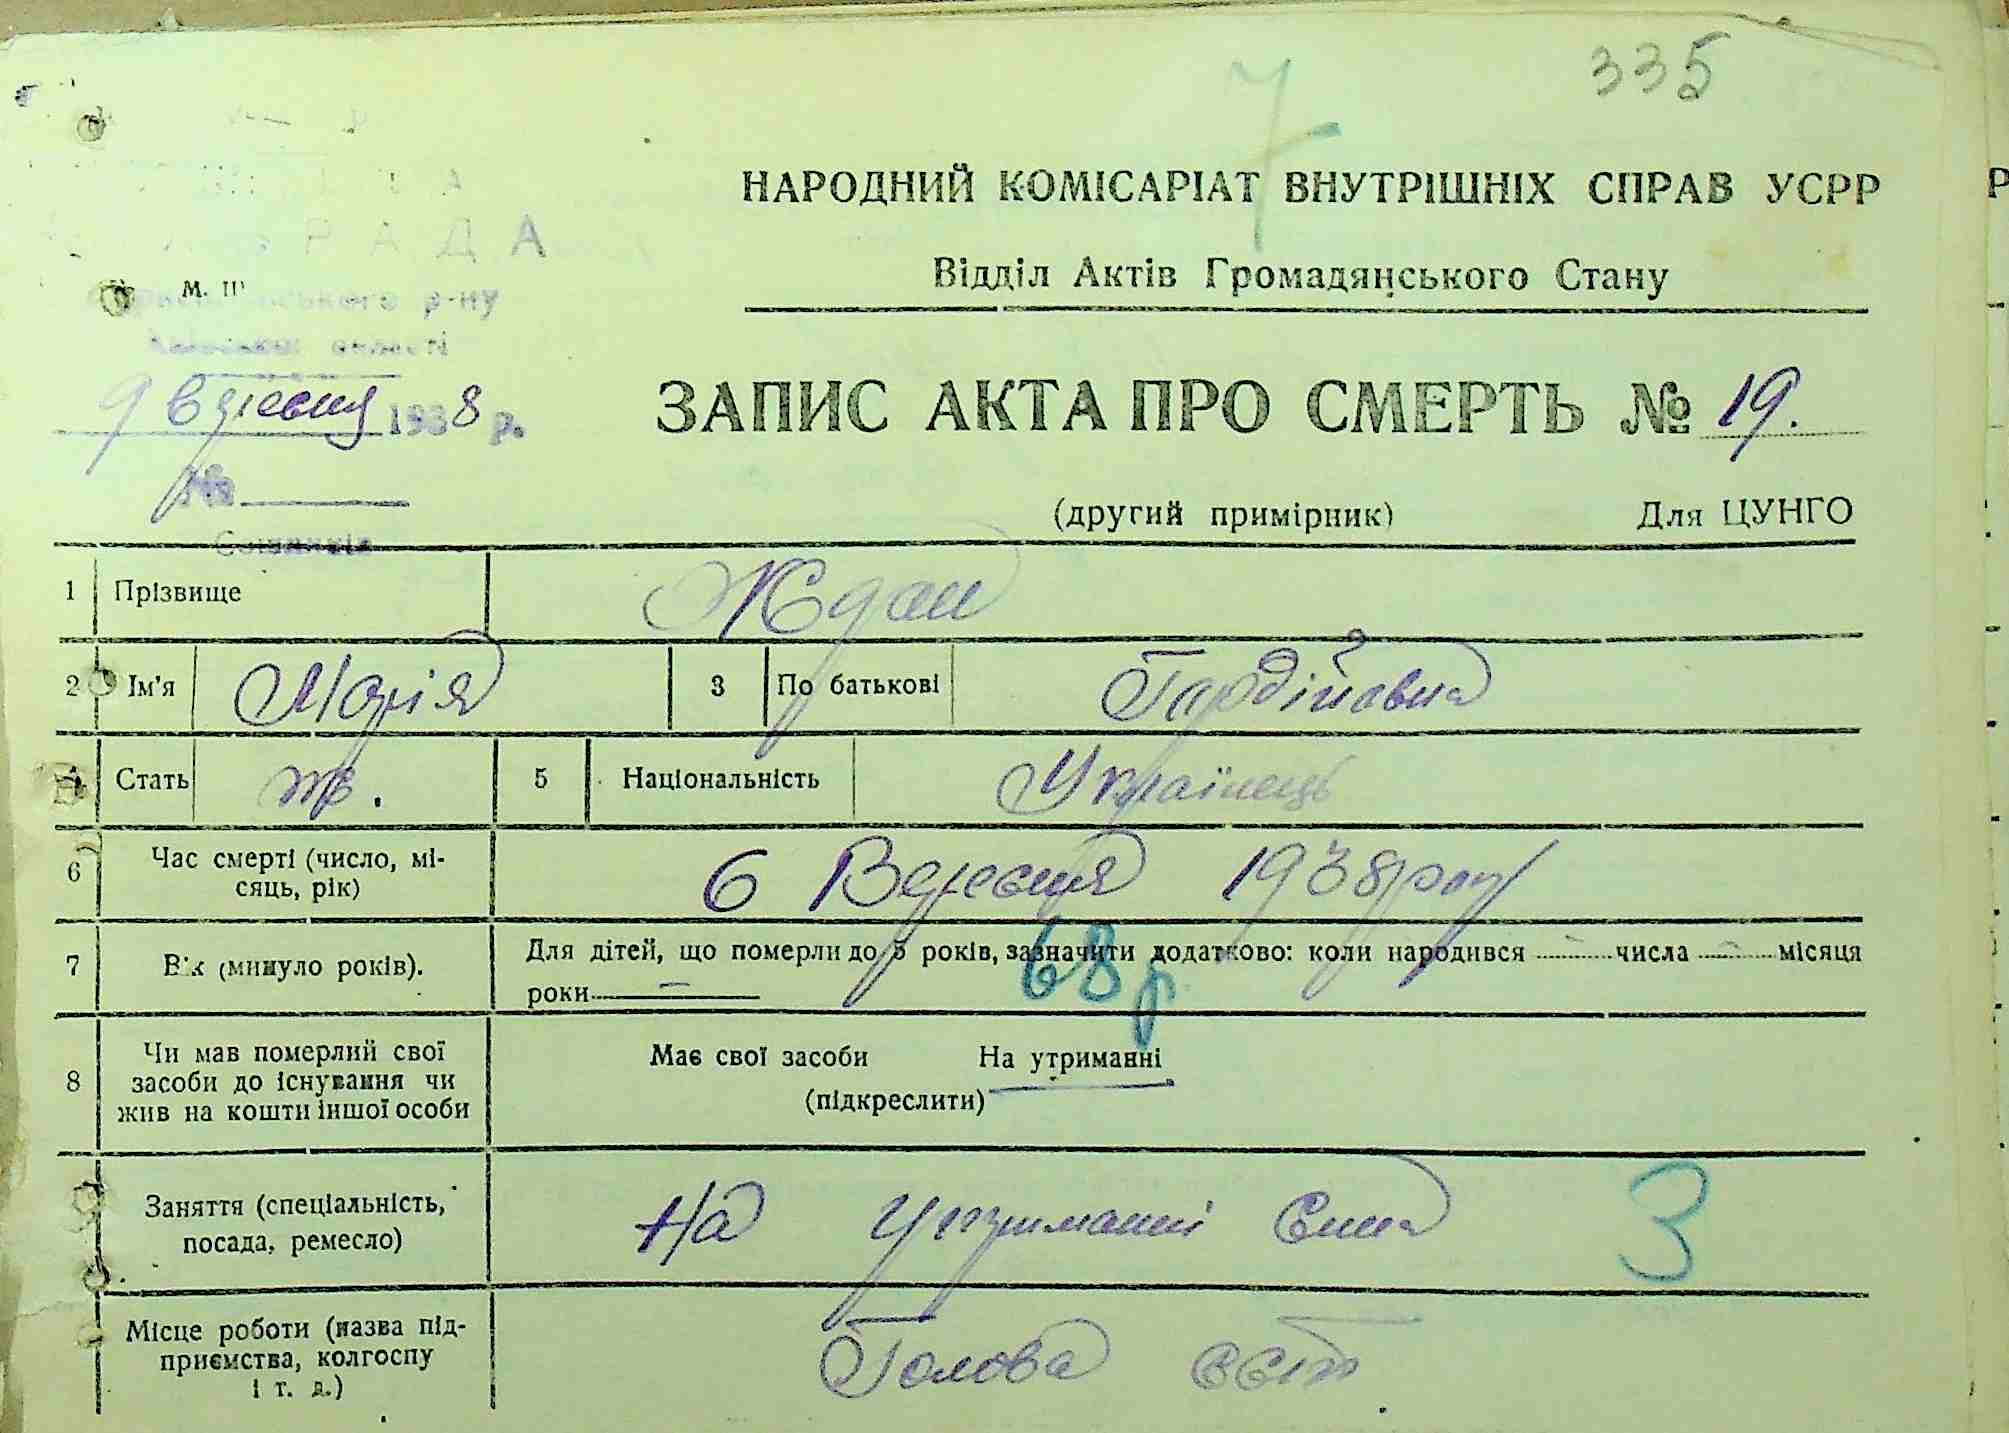 335
7
НАРОДНИЙ КОМІСАРІАТ ВНУТРІШНІХ СПРАВ УСРР
Відділ Актів Громадянського Стану
РАДА
М. П.
р-ну
області
9 вересня 1938 р.
№
ЗАПИС АКТА ПРО СМЕРТЬ № 19.
(другий примірник) Для ЦУНГО
1 Прізвище Ждан
2 Ім'я Марія 3 По батькові Гордійовна
4 Стать ж. 5 Національність Українець
6 Час смерті (число, мі-
сяць, рік) 6 Вересня 1938 року
7 Вік (минуло років). Для дітей, що померли до 5 років, зазначити додатково: коли народився – числа – місяця
роки –
68 р
8 Чи мав померлий свої
засоби до існування чи
жив на кошти іншої особи
Має свої засоби На утриманні
(підкреслити)
Заняття (спеціальність,
посада, ремесло) На Утриманні Сина
3
Місце роботи (назва під-
приємства, колгоспу
і т. д.) Голова